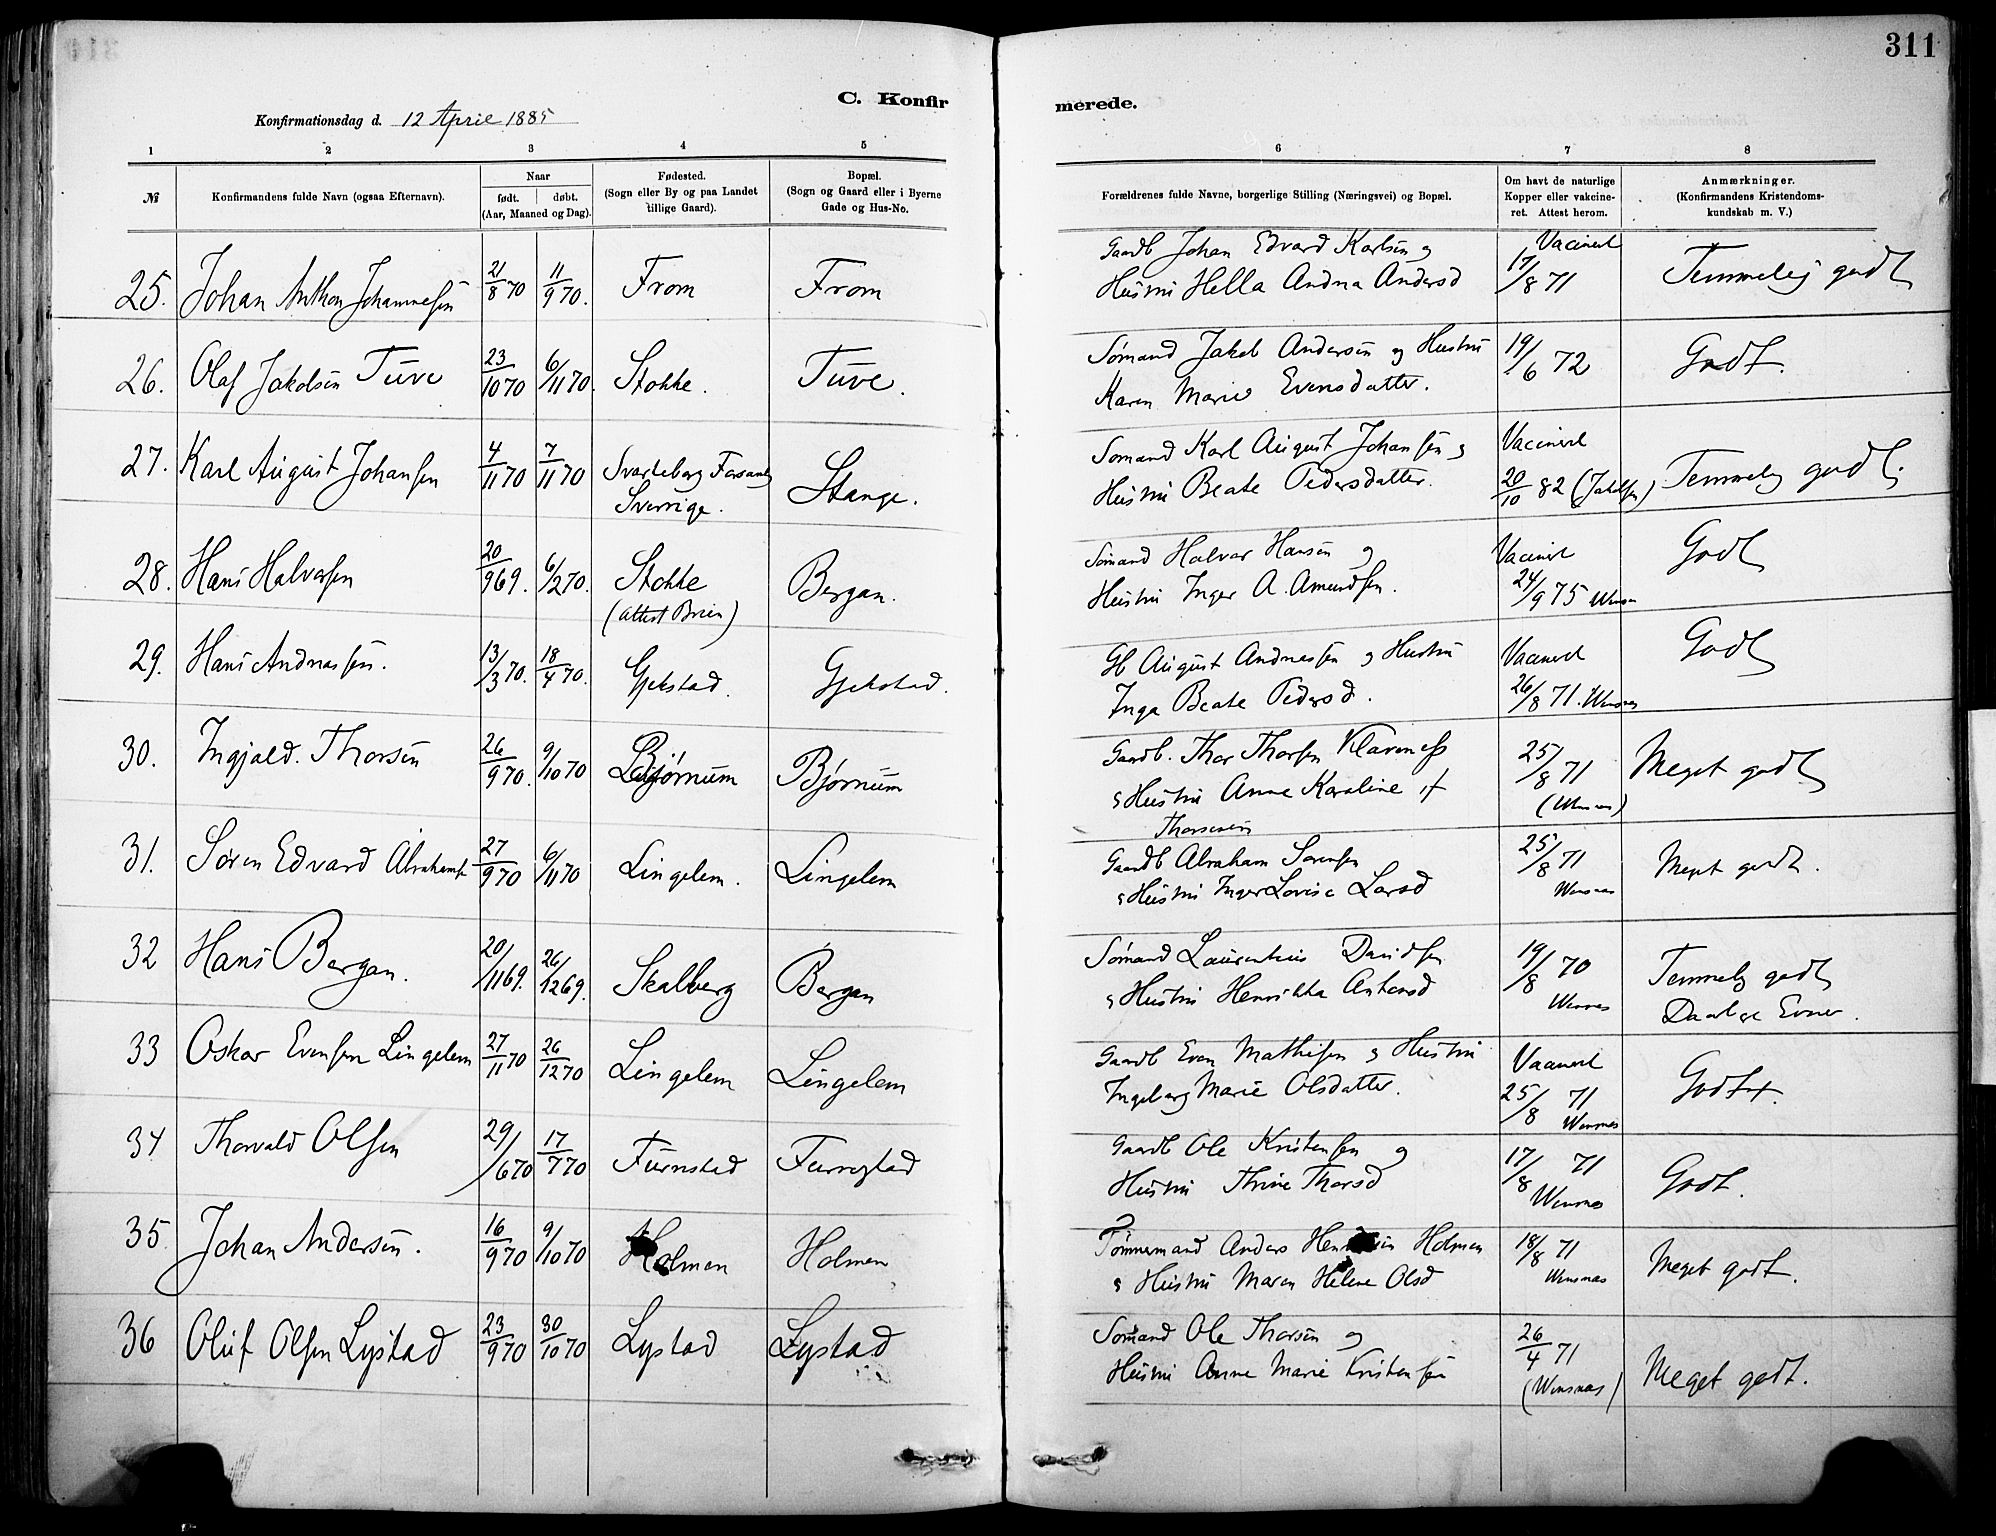 311
C. Konfir merede.
Konfirmationsdag d. 12 April 1885
1 2 3 4 5 6 7 8
№ Konfirmandens fulde Navn (ogsaa Efternavn). Naar født. døbt. (Aar, Maaned og Dag). Fødested. (Sogn eller By og paa Landet tillige Gaard). Bopæl. (Sogn og Gaard eller i Byerne Gade og Hus-No. Forældrenes fulde Navne, borgerlige Stilling (Næringsvei) og Bopæl. Om havt de naturlige Kopper eller vakcineret. Attest herom. Anmærkninger. (Konfirmandens Kristendomskundskab m. V.)
25. Johan Anthon Johannesen 21/8 70 11/9 70. From From Gaardb Johan Edvard Karlsen og Hustru Hella Andrea Andersd Vacinert 17/8 71 Temmelig godt
26. Olaf Jakobsen Tuve 23/10 70 6/11 70. Stokke. Tuve. Sømand Jakob Andersen og Hustru Karen Marie Evensdatter. 19/6 72 Godt.
27. Karl August Johansen 4/11 70 7/11 70 Svarteborg Sverrige. Stange. Sømand Karl August Johansen og Hustru Beate Pedersdatter. Vacinert 20/10 82 (Jakobsen) Temmelig godt.
28. Hans Halvorsen 20/9 69. 6/2 70. Stokke (attest Brien) Bergan. Sømand Halvor Hansen og Hustru Inger A. Amundsen. Vacinert 24/9 75 Wensnes Godt
29. Hans Andreassen. 13/3 70. 18/4 70. Gjekstad. Gjekstad. Gb August Andreassen og Hustru Inga Beate Pedersd. Vacinert 26/8 71. Wensnes Godt
30. Ingjald. Thorsen 26/9 70. 9/10 70 Bjørnum Bjørnum Gaardb. Thor Thorsen Klavness og Hustru Anne Karoline f Thorsen 25/8 71 (Wensnes) Meget godt
31. Søren Edvard Abrahams 27/9 70 6/11 70 Lingelem. Lingelem Gaardb Abraham Sørensen og Hustru Inger Lovise Larsd 25/8 71 Wensnas Meget godt.
32 Hans Bergan. 20/11 69. 26/12 69. Skalberg Bergan Sømand Laurentius Davidsen og Hustru Henrikka Antonsd 19/8 70 Wensnes Temmelig godt Daarlige Evner.
33 Oskar Evensen Lingelem 27/11 70 26/12 70 Lingelem Lingelem Gaardb Even Mathisen og Hustru Ingeborg Marie Olsdatter. Vacinert 25/8 71 Wensnes Godt+.
34 Thorvald Olsen 29/6 70 17/7 70 Furustad Furustad Gaardb Ole Kristensen og Hustru Thrine Thorsd 17/8 71 Wensnes Godt.
35 Johan Andersen. 16/9 70 9/10 70 Holmen Holmen Tømmermand Anders Henriksen Holmen og Hustru Maren Helene Olsd 18/8 71 Wensnas Meget godt.
36 Oluf Olsen Lystad 23/9 70 30/10 70 Lystad Lystad Sømand Ole Thorsen og Hustru Anne Marie Kristensen 26/4 71 (Wensnas) Meget godt.